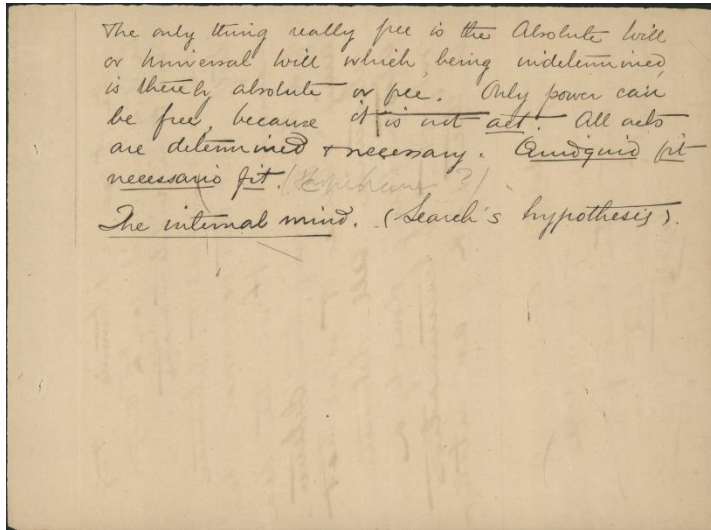 The only thing really free is the Absolute Will
or Universal Will which, being undetermined,
is thereby absolute or free. Only power can
be free, because it is not act. All acts
are determined & necessary. Quidquid fit
necessario fit. ( ?).
The internal mind. (Search's hypothesis).